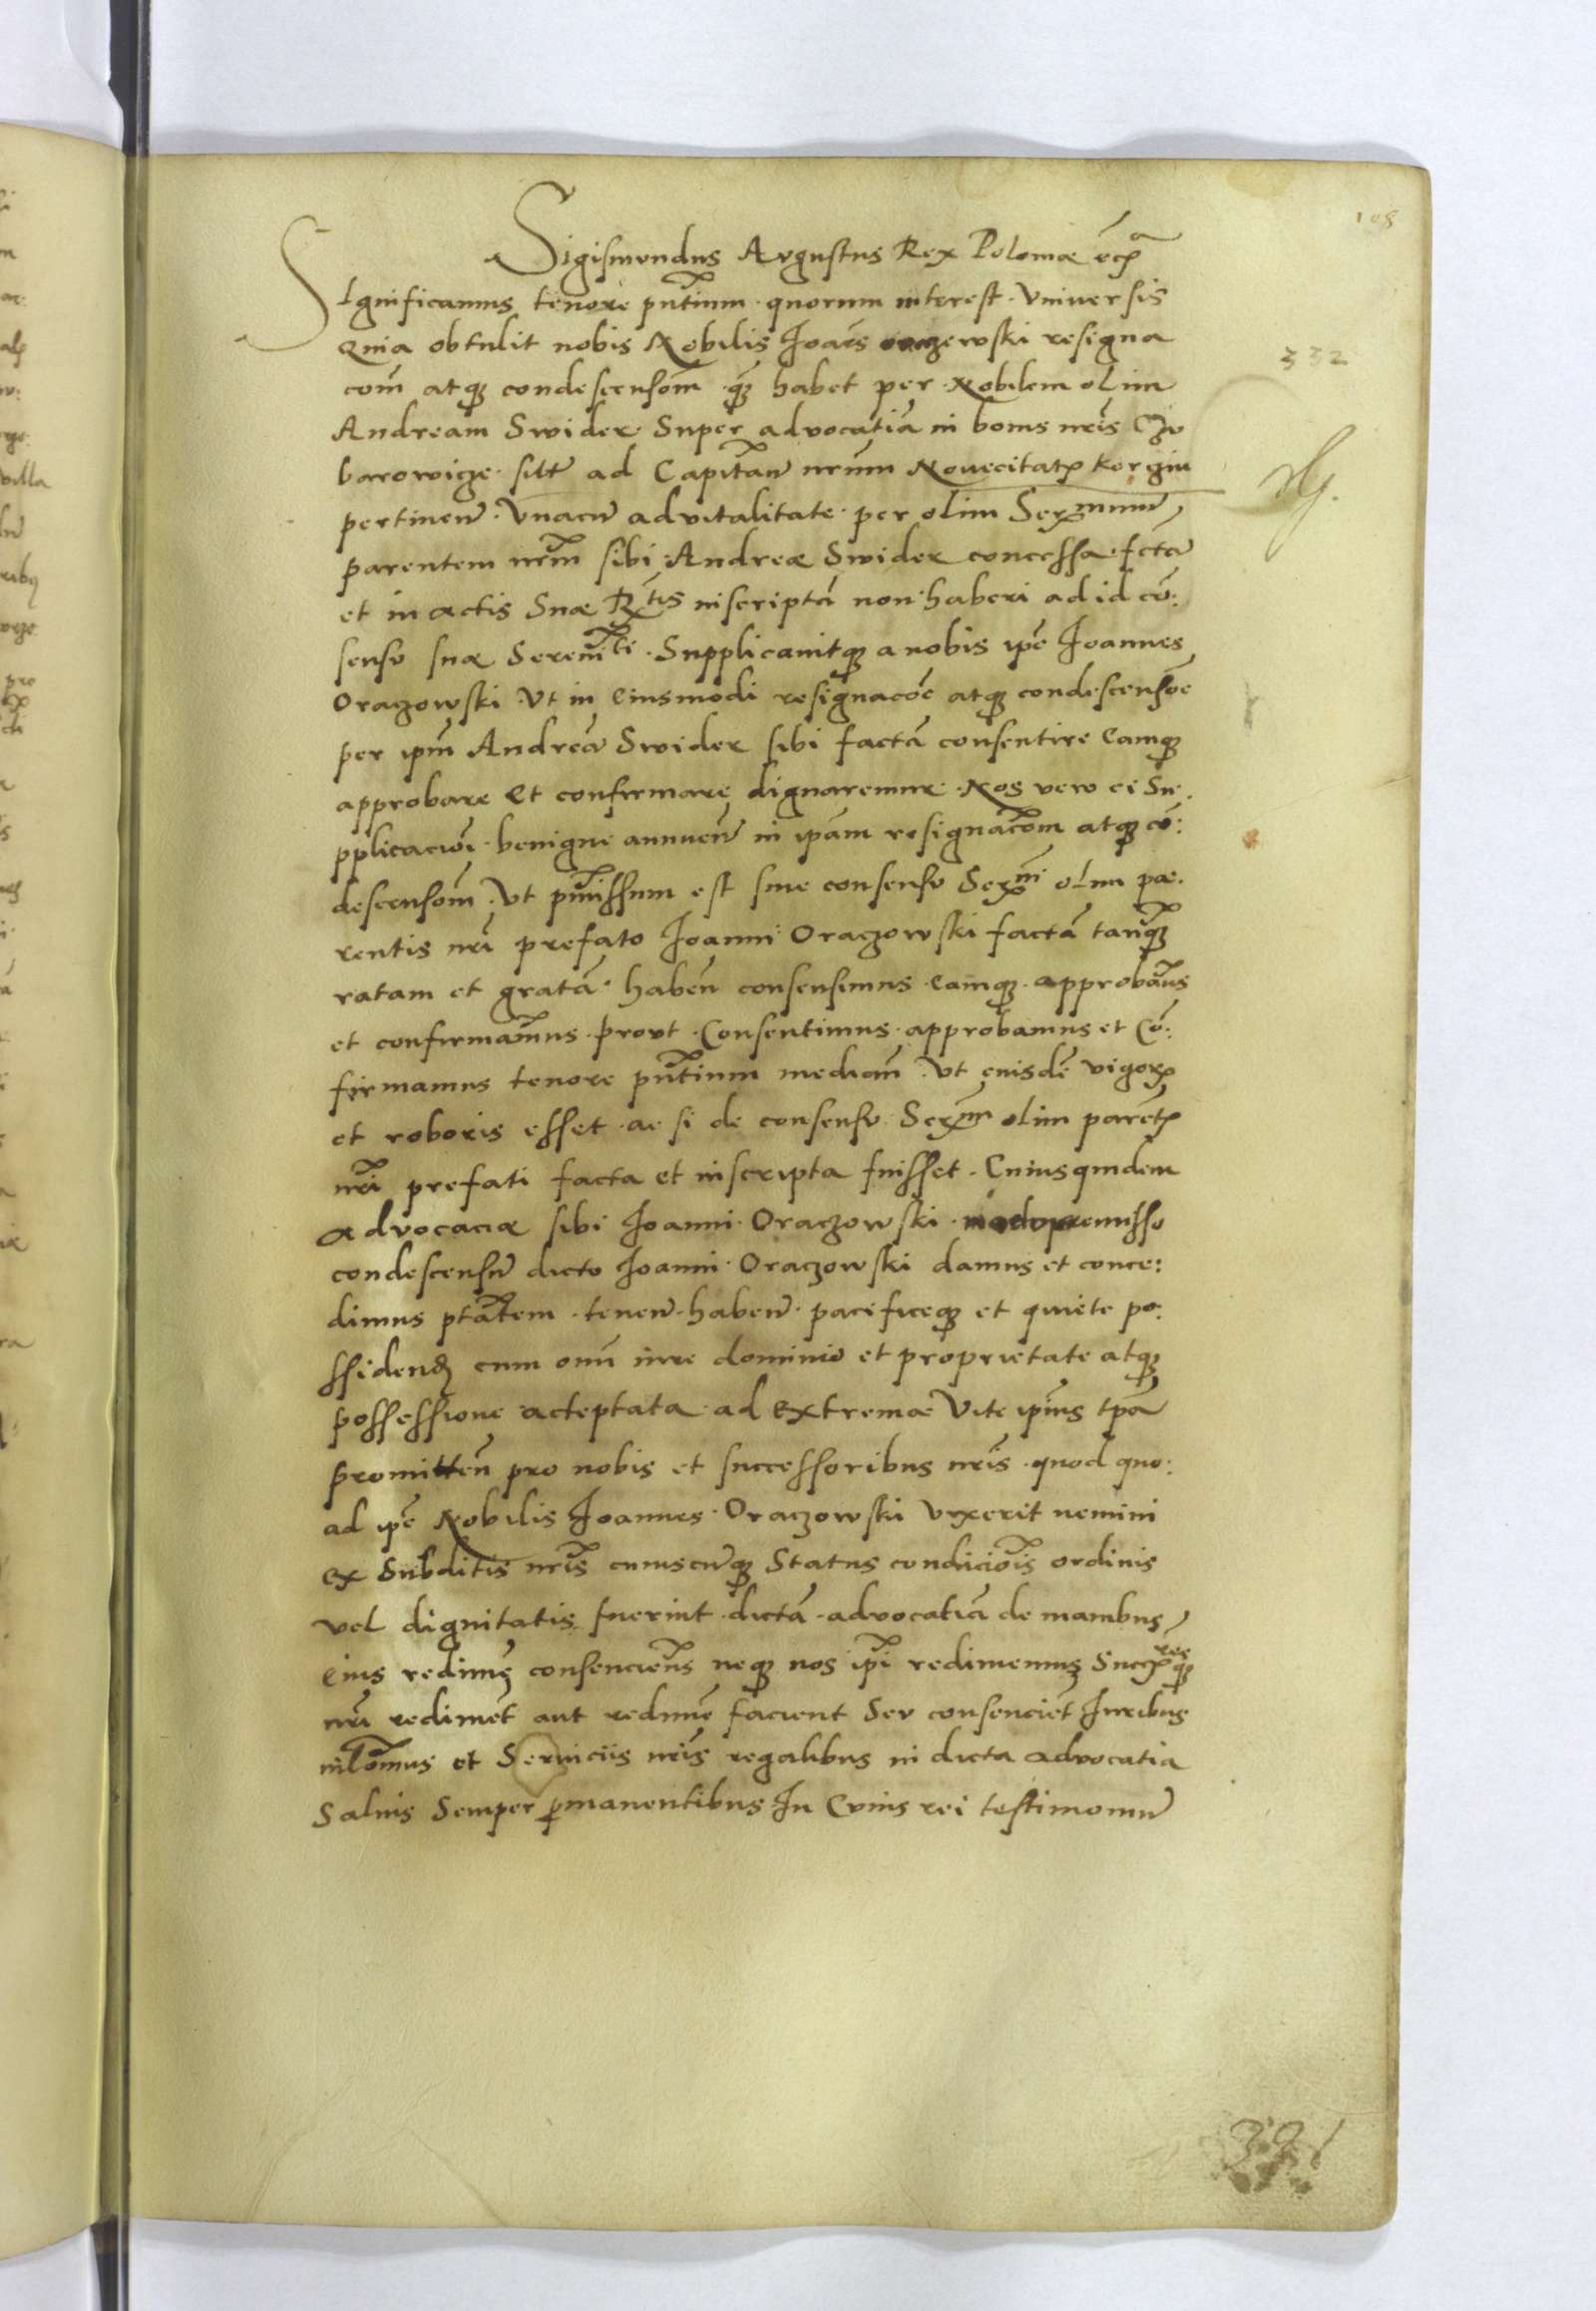 108
Sigismvndus Avgustus Rex Poloniæ etc̃
SIgnificamus tenore pñtium quorum interest Vniuersis
Quia obtulit nobis Nobilis Joañes Oraczewski resigna
com̃ atq̃ condescensom̃ q̃ habet per Nobilem olim
332
Andream Swider Super advocatiã in bonis nr̃is Czv
barowicze silr̃ ad Capitan̄ nrũm Novecitatꝭ Korczin
pertinen̄ Vnacũ advitalitate per olim Serꝫmum
parentem nrm̃ sibi Andreæ Swider concessa fctã
et in actis Suæ R̃tis inscriptã non haberi ad id cõ:
sensv suæ Serenitt̃i Supplicauitq̃ a nobis ipẽ Joannes
Oraczowski Vt in Eiusmodi resignacõe atq̃ condescensõe
per ipm̃ Andreã Swider sibi factã consentire Eamq̃
approbare Et confirmare dignaremur Nos vero ei Su
pplicacioi benigne annuen̄ in ipãm resignacõm atq̃ cõ:
descensom̃ Vt pmissum est sine consensv Serꝫmi olim pa
rentis nr̃i prefato Joanni Oraczowski factã tanq̃
ratam et gratã haben̄ consensimus Eamq̃ approbauĩs
et confirmauĩmus provt Consentimus approbamus et Cõ:
firmamus tenore pñtium median̄ Vt euisdẽ vigorꝭ
et roboris esset ac si de consensv Serꝫmi olim parẽtꝭ
nr̃i prefati facta et inscripta fuisset Cuiusquidem
Advocaciæ sibi Joanni Oraczowski modo premisso
condescensũ dicto Joanni Oraczowski damus et conce:
dimus ptãtem tenen̄ haben̄ pacificeq̃ et quiete po:
ssidend cum omĩ iure dominio et proprietate atq̃
possessione acceptata ad Extremæ Vite ipĩus tpã
promitten̄ pro nobis et successoribus nr̃is quod quo:
ad ipẽ Nobilis Joannes Oraczowski vixerit nemini
Ex Subditis nr̃is cuiuscũq̃ Status condicioĩs ordinis
vel dignitatis fuerint dictã advocatiã de manibus
Eius redimẽ consenciemũs neq̃ nos ipĩ redimemus Succꝭresq̃
nr̃i rediment aut redimẽ facient Sev consenciẽt Juribus
nilomĩus et Seruiciis nr̃is regalibus in dicta advocatia
Saluis Semper ꝑmanentibus In Cvius rei testimoniũ
391